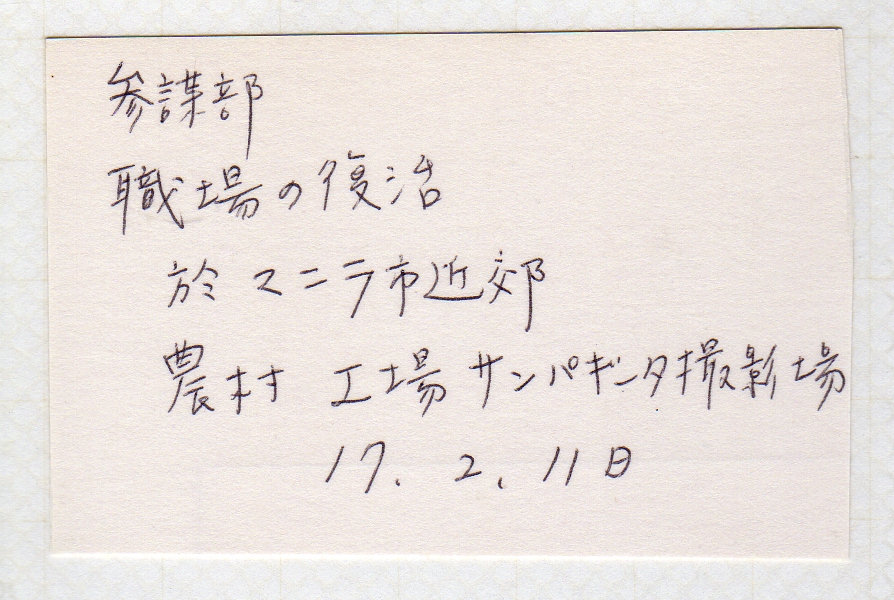 参謀部
職場の復活
於マニラ市近郊
農村 工場 サンパギータ撮影場
17. 2. 11日